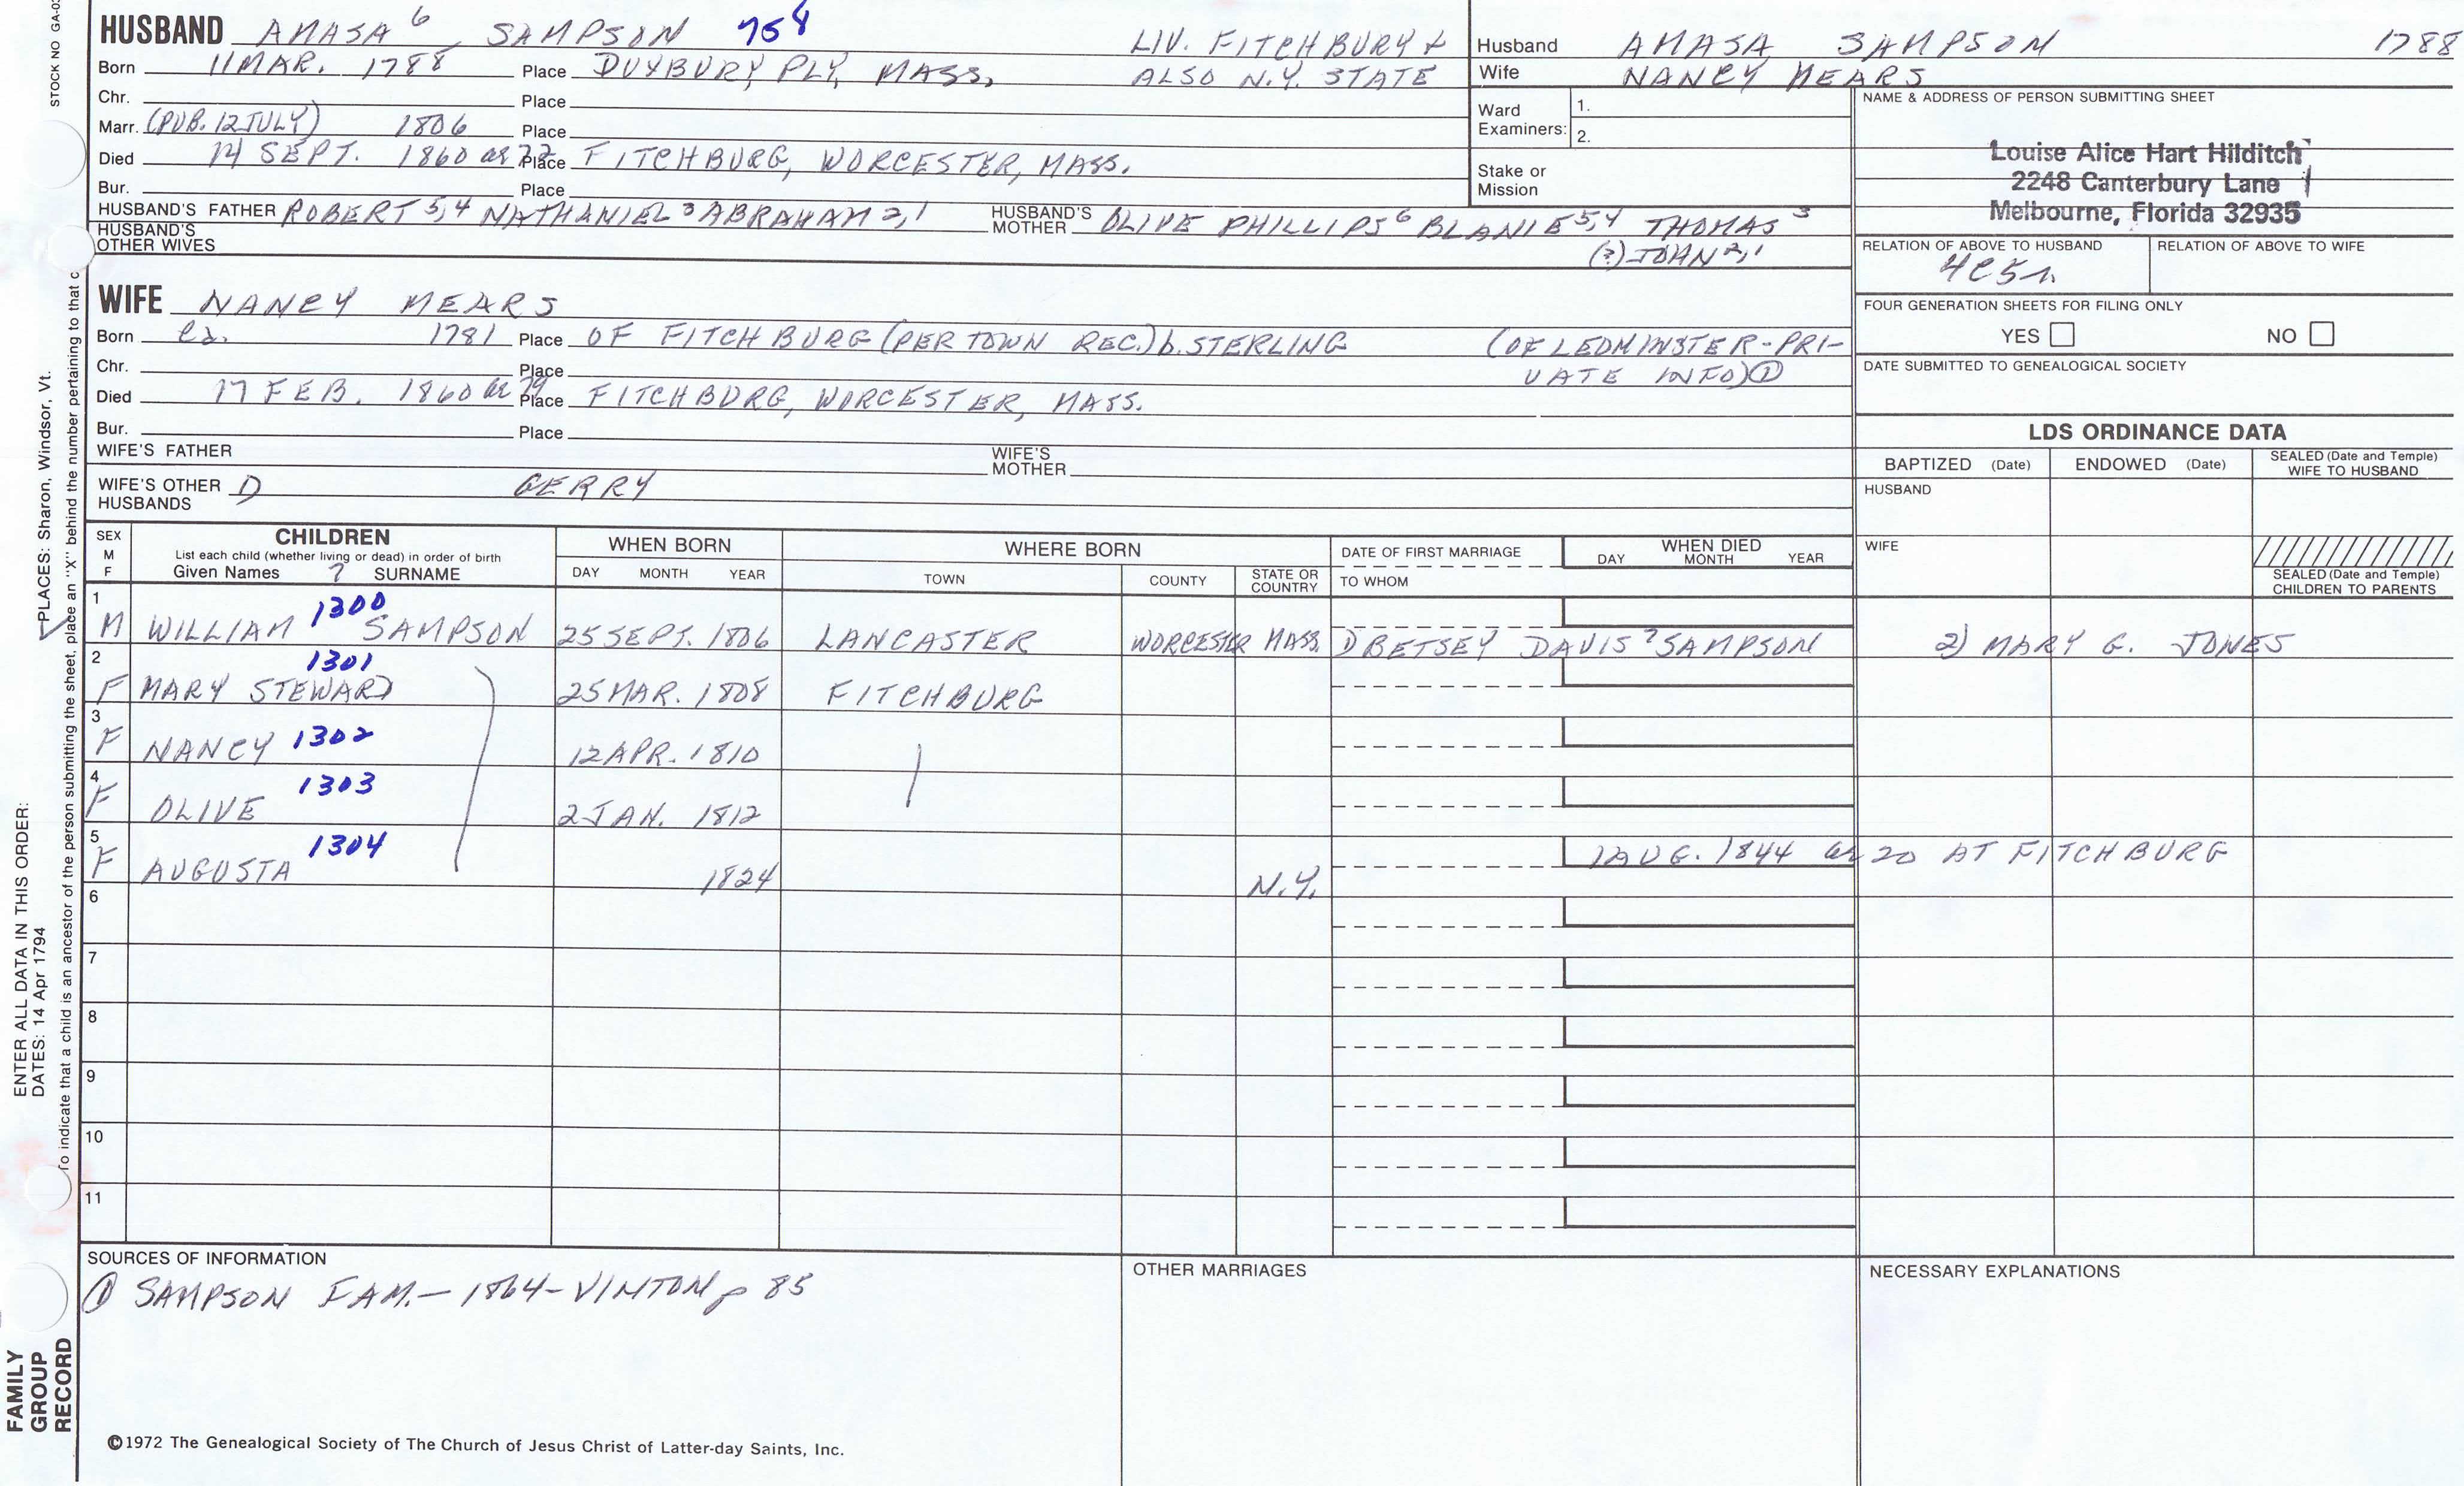 STOCK NO GA-0
HUSBAND AMASA 6 SAMPSON 758 LIV. FITCHBURY &
Born 11 MAR. 1788 Place DUXBURY, PLY, MASS, ALSO N.Y. STATE
Chr. Place
Marr. (PUB. 12 JULY) 1806 Place
Died 14 SEPT. 1860 ae 72 Place FITCHBURG, WORCESTER, MASS.
Bur. Place
HUSBAND'S FATHER ROBERT 5,4 NATHANIEL 3 ABRAHAM 2,1 HUSBAND'S MOTHER OLIVE PHILLIPS 6 BLANIE 5,4 THOMAS 3
HUSBAND'S OTHER WIVES (?) JOHN 2,1
Husband AMASA SAMPSON 1788
Wife NANCY MEARS
Ward Examiners: 1.
2.
Stake or Mission
NAME & ADDRESS OF PERSON SUBMITTING SHEET
Louise Alice Hart Hilditch
2248 Canterbury Lane
Melbourne, Florida 32935
RELATION OF ABOVE TO HUSBAND RELATION OF ABOVE TO WIFE
4C5r.
FOUR GENERATION SHEETS FOR FILING ONLY
YES NO
DATE SUBMITTED TO GENEALOGICAL SOCIETY
WIFE NANCY MEARS
Born ca. 1781 Place OF FITCHBURG (PER TOWN REC.) b. STERLING (OF LEOMINSTER - PRI-
Chr. Place VATE INFO) ①
Died 17 FEB. 1860 ae 79 Place FITCHBURG, WORCESTER, MASS.
Bur. Place
WIFE'S FATHER WIFE'S MOTHER
WIFE'S OTHER HUSBANDS 1) GERRY
LDS ORDINANCE DATA
BAPTIZED (Date) ENDOWED (Date) SEALED (Date and Temple) WIFE TO HUSBAND
HUSBAND
WIFE
SEALED (Date and Temple) CHILDREN TO PARENTS
SEX M F CHILDREN WHEN BORN WHERE BORN DATE OF FIRST MARRIAGE WHEN DIED
List each child (whether living or dead) in order of birth
Given Names 7 SURNAME DAY MONTH YEAR TOWN COUNTY STATE OR COUNTRY TO WHOM DAY MONTH YEAR
1 M WILLIAM 1300 SAMPSON 25 SEPT. 1806 LANCASTER WORCESTER MASS. 1) BETSEY DAVIS 7 SAMPSON 2) MARY G. JONES
2 F MARY STEWARD 1301 25 MAR. 1808 FITCHBURG
3 F NANCY 1302 12 APR. 1810
4 F OLIVE 1303 2 JAN. 1812
5 F AUGUSTA 1304 1824 N.Y. 1 AUG. 1844 ae 20 AT FITCHBURG
6
7
8
9
10
11
SOURCES OF INFORMATION OTHER MARRIAGES NECESSARY EXPLANATIONS
① SAMPSON FAM. - 1864 - VINTON p 85
©1972 The Genealogical Society of The Church of Jesus Christ of Latter-day Saints, Inc.
FAMILY GROUP RECORD
ENTER ALL DATA IN THIS ORDER:
DATES: 14 Apr 1794
PLACES: Sharon, Windsor, Vt.
To indicate that a child is an ancestor of the person submitting the sheet, place an "X" behind the number pertaining to that c